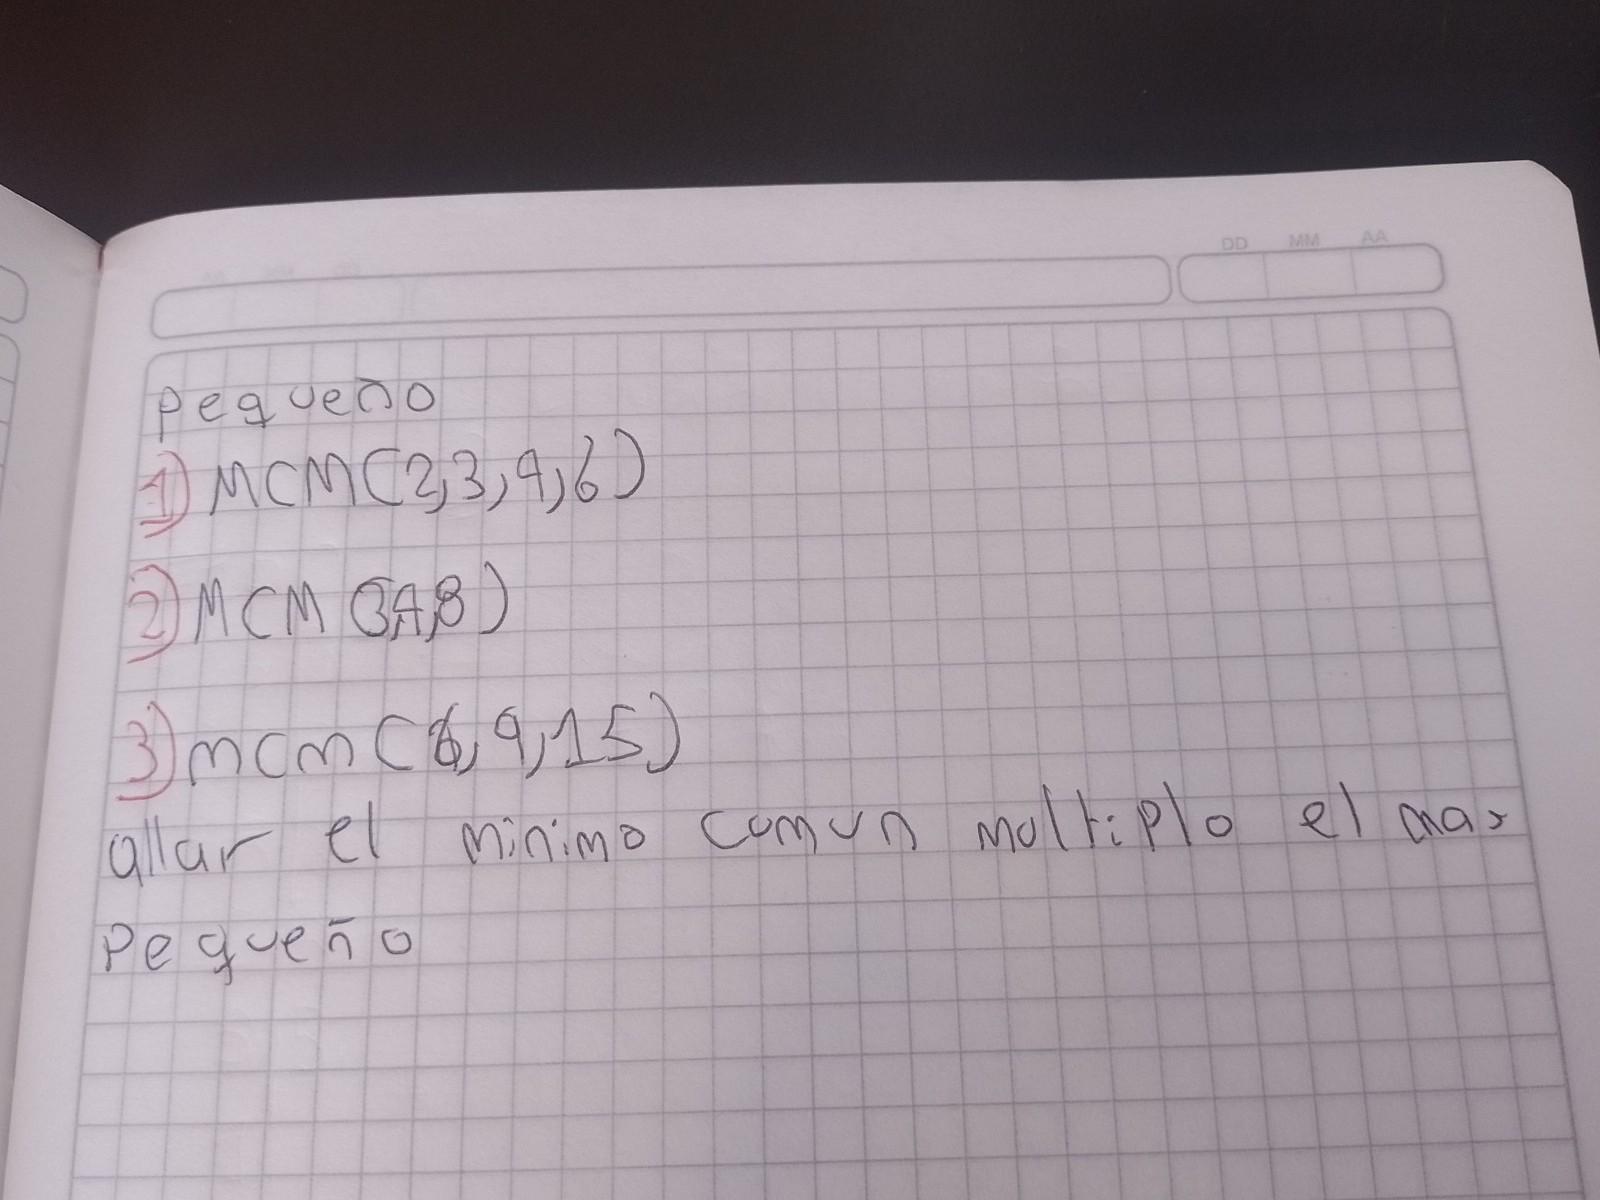 DD MM AA
pequeño
1) MCM(2,3,4,6)
2) MCM (3,4,8)
3) mcm (6,9,15)
allar el minimo comun multiplo el mas
pequeño